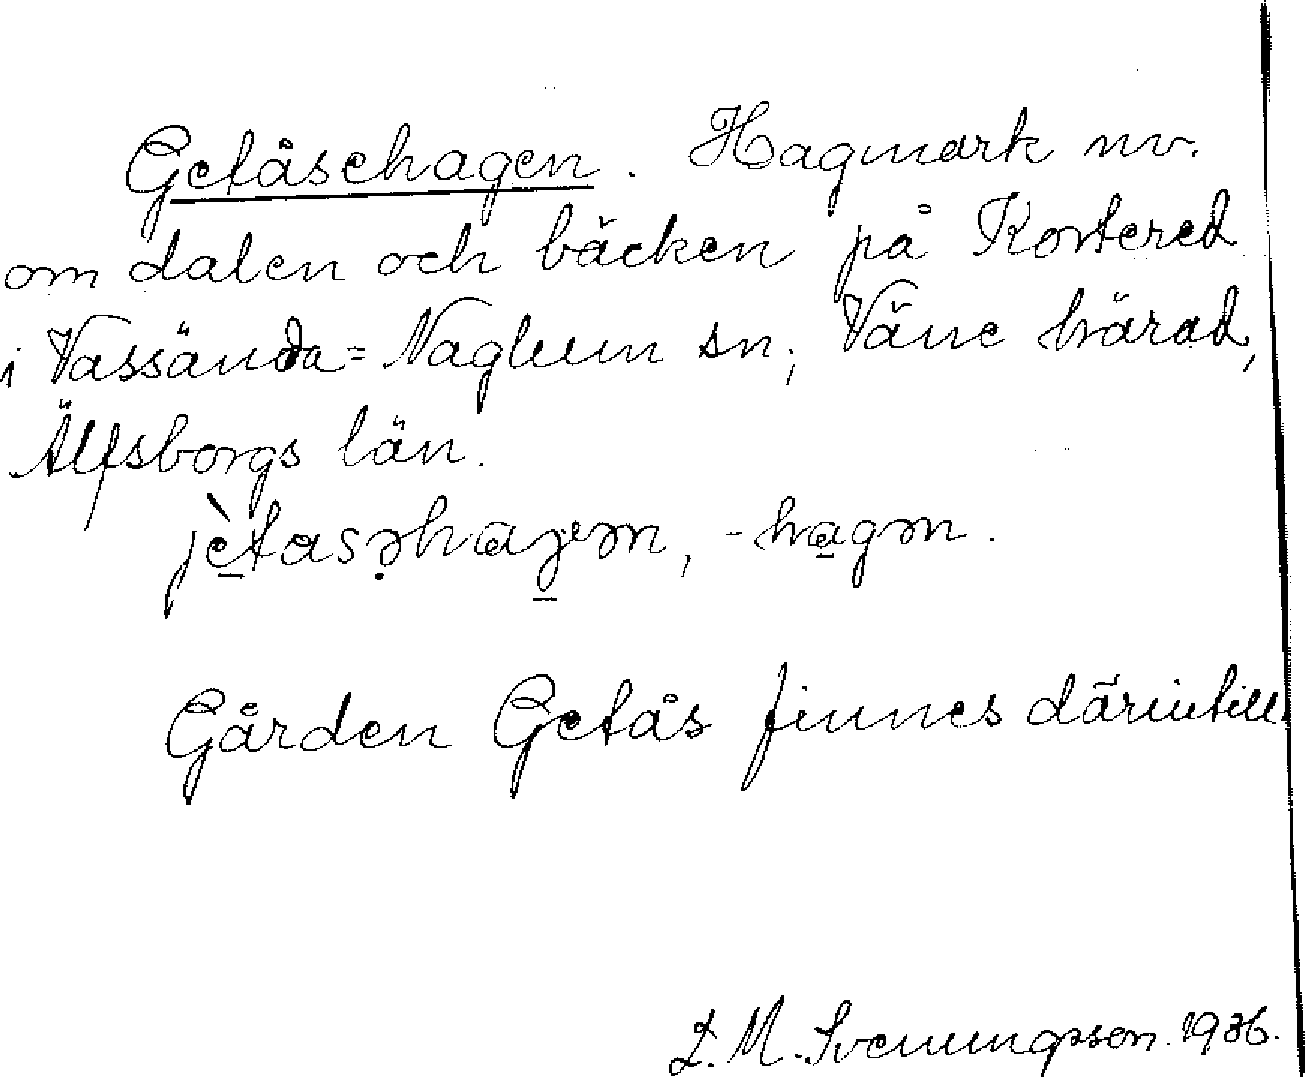 Getåsehagen. Hagmark nv.
om dalen och bäcken på Kortered
i Vassända=Naglum sn, Väne härad,
Älfsborgs län.
jètasəhagən, -hagən.
Gården Getås finnes därintill.
L. M. Svenungsson. 1936.